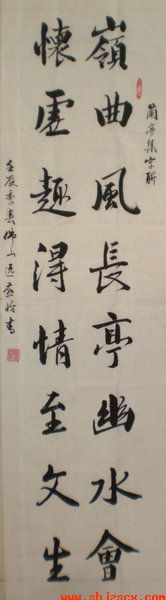 蘭亭集字聯
嶺曲風長亭幽水會
懷虛趣得情至文生
壬辰季春佛山
www.shjzscx.com